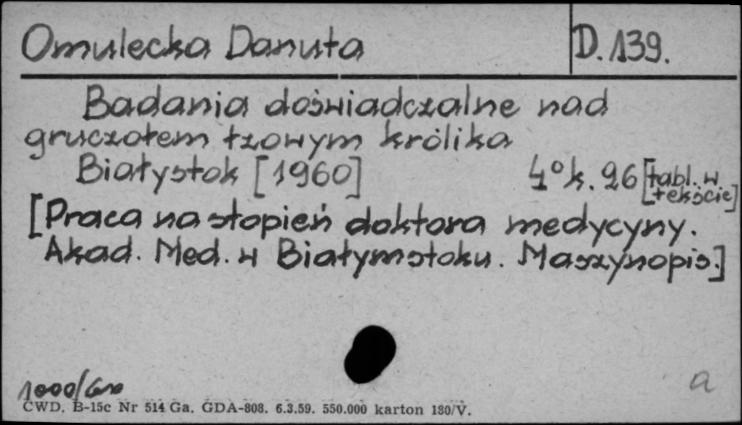 Omulecka Danuta D. 139.
Badania doświadczalne nad
gruczołem łzowym królika
Białystok [1960] 4° k. 96 [tabl. w
tekście]
[Praca na stopień doktora medycyny.
Akad. Med. w Białymstoku. Maszynopis.]
a
CWD. B-15c Nr 514 Ga. GDA-808. 6.3.59. 550.000 karton 180/V.